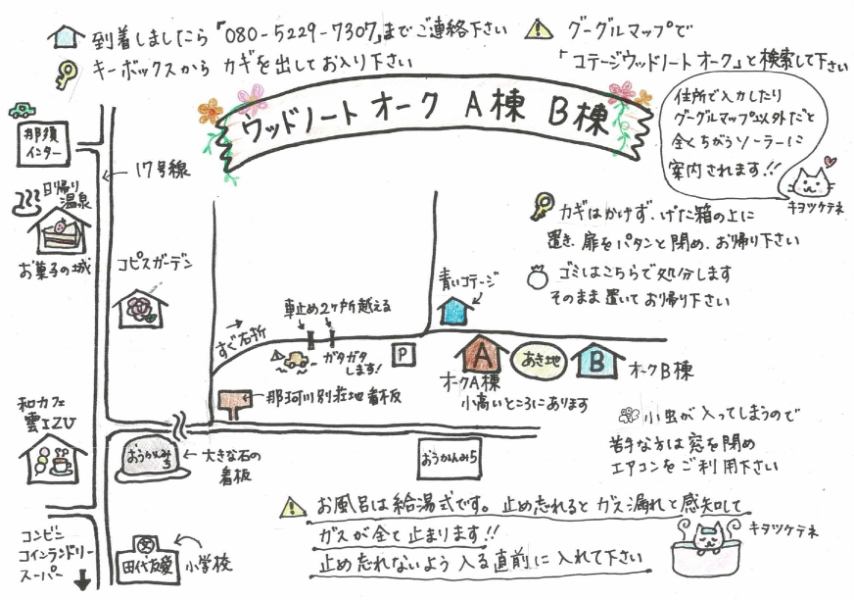 到着しましたら「080-5229-7307」までご連絡下さい
キーボックスから カギを出してお入り下さい
グーグルマップで
「コテージウッドノート オーク」と検索して下さい
ウッドノート オーク A棟 B棟
住所で入力したり
グーグルマップ以外だと
全くちがうソーラーに
案内されます!!
キヲツケテネ
那須
インター
17号線
日帰り
温泉
お菓子の城
コピスガーデン
カギはかけず、げた箱の上に
置き、扉をパタンと閉め、お帰り下さい
ゴミはこちらで処分します
そのまま置いてお帰り下さい
青いコテージ
車止め2ヶ所越える
すぐ右折
ガタガタ
します!
P
A
あき地
B
オークA棟
小高いところにあります
オークB棟
那珂川別荘地看板
和カフェ
雲IZU
おうかんみち
3
大きな石の
看板
おうかんみち5
小虫が入ってしまうので
苦手な方は窓を閉め
エアコンをご利用下さい
お風呂は給湯式です。止め忘れると ガス漏れと感知して
ガスが全て止まります!!
止め忘れないよう 入る直前に入れて下さい
キヲツケテネ
コンビニ
コインランドリー
スーパー
文
田代友愛
小学校